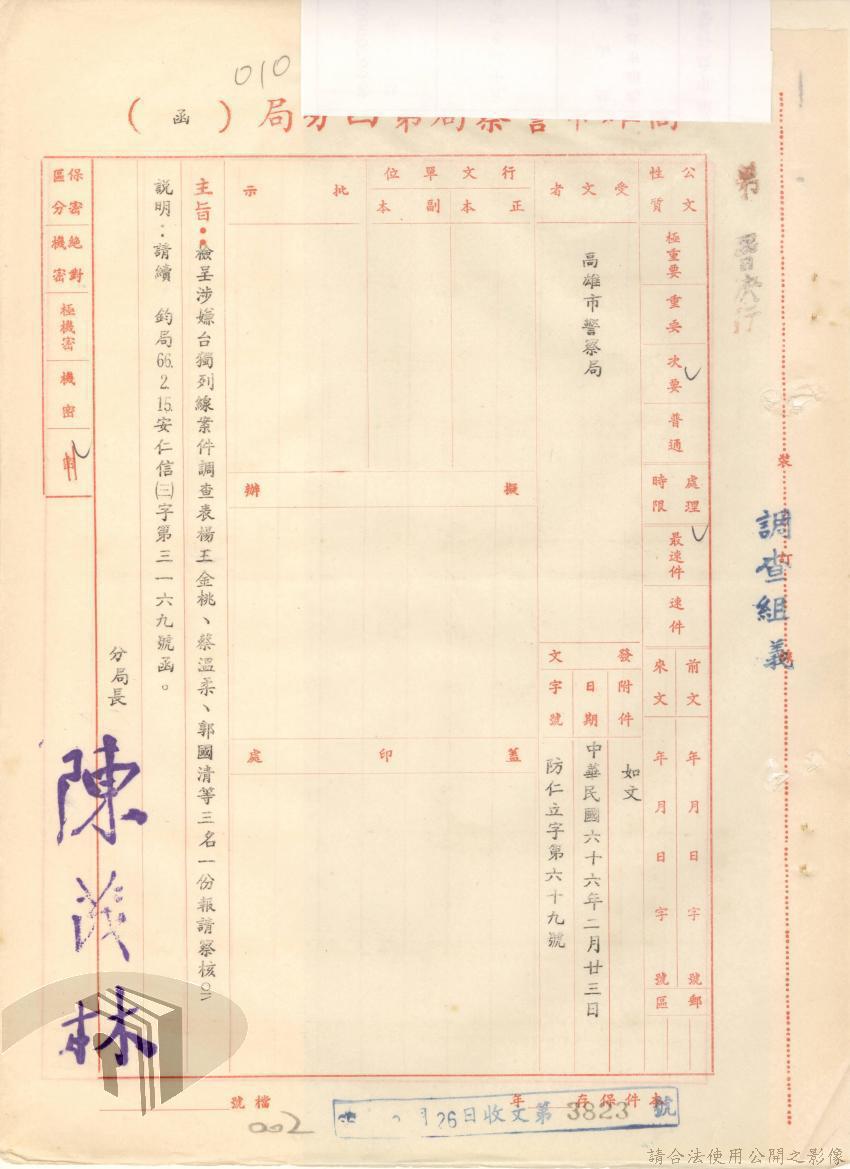 010
高雄市警察局第四分局（函）
第 號
調查組義
裝
訂
公文性質
極重要
重要
次要
普通
處理時限
最速件
速件
前文
年月日字號
來文
年月日字號
郵區
受文者
高雄市警察局
發文
附件
如文
日期
中華民國六十六年二月廿三日
字號
防仁立字第六十九號
行文單位
正本
副本
批示
擬辦
蓋印處
主旨：檢呈涉嫌台獨列線案件調查表楊王金桃、蔡溫柔、郭國清等三名一份報請察核。
說明：請續 鈞局66.2.15.安仁信㈢字第三一六九號函。
分局長
陳茂林
保密區分
絕對機密
極機密
機密
密
本件保存 年
檔號
002
26日收文第3823號
請合法使用公開之影像